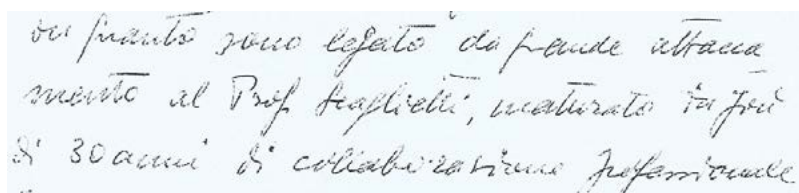 in quanto sono legato da grande attacca
mento al Prof Scaglietti, maturato in più
di 30 anni di collaborazione professionale